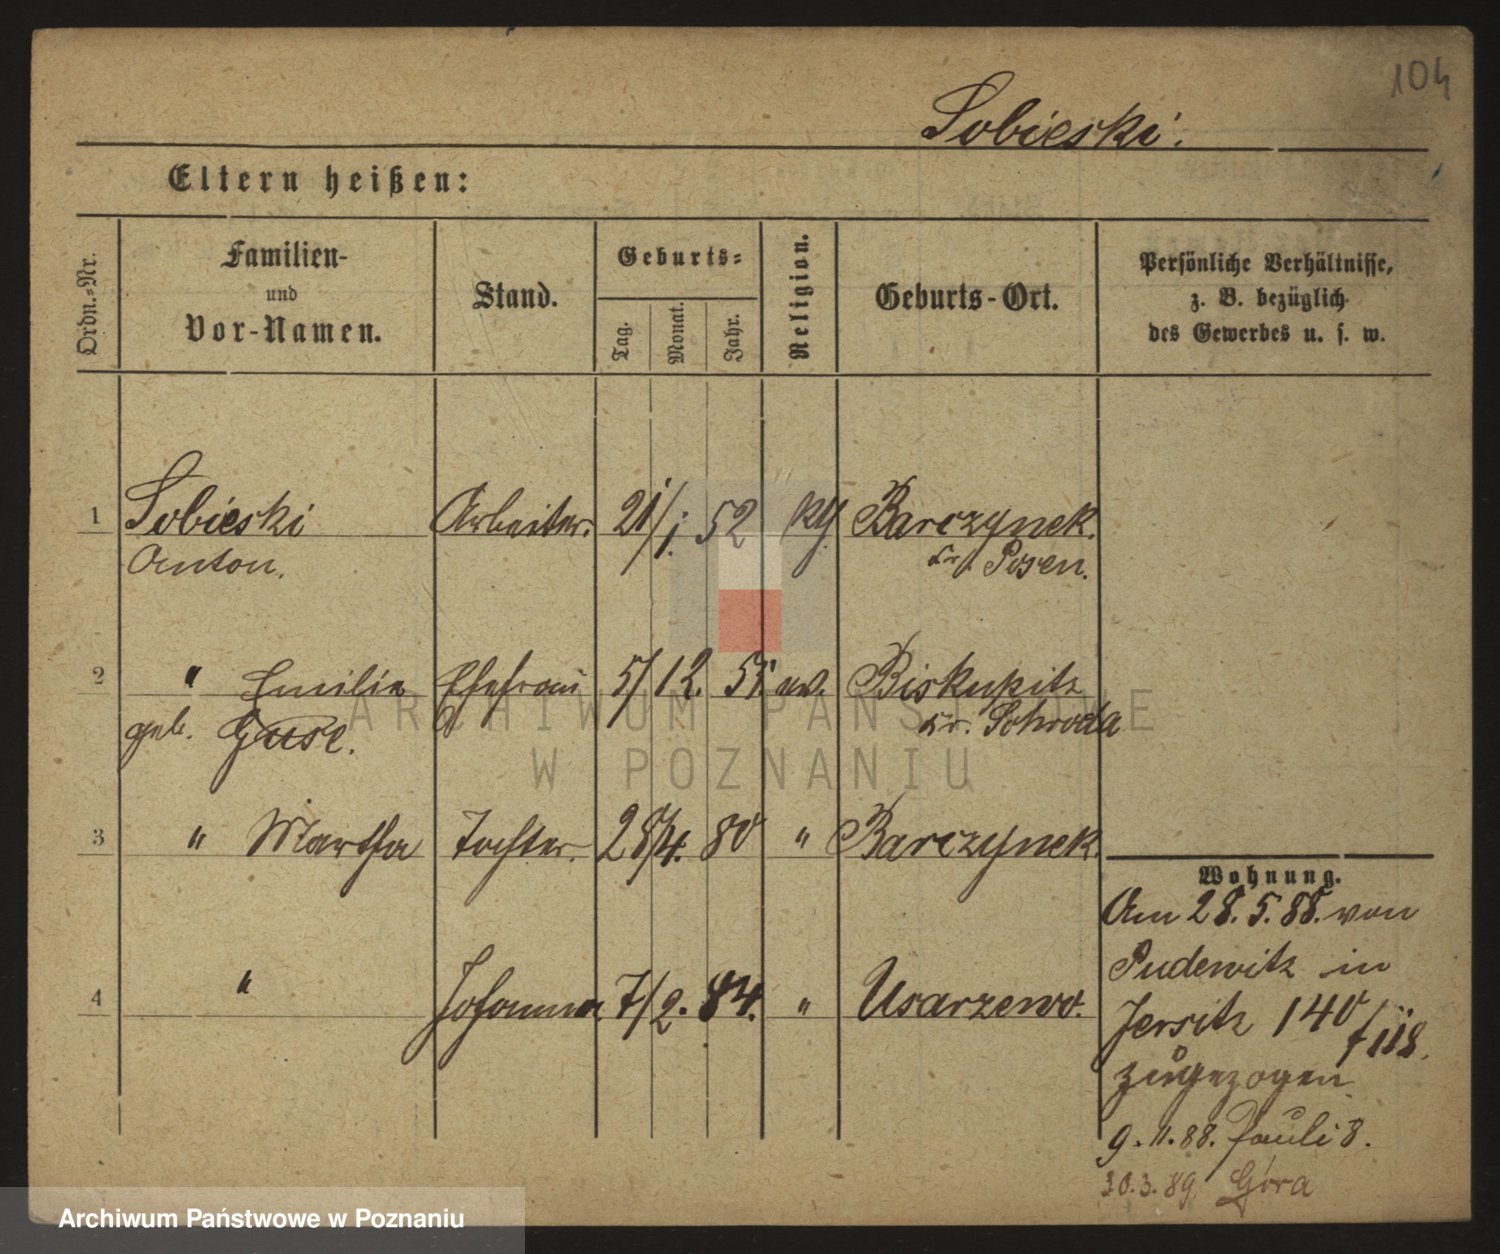 104
Sobieski.
Eltern heißen:
Ordn.-Nr.
Familien-
und
Vor-Namen.
Stand.
Geburts-
Tag.
Monat.
Jahr.
Religion.
Geburts-Ort.
Persönliche Verhältnisse,
z. B. bezüglich
des Gewerbes u. s. w.
1 Sobieski Arbeiter. 21/1. 52 Barczynek.
Anton. Kr. Posen.
2 " Emilie Ehefrau 5/12. 55. ev. Biskupitz
geb. Guse. Kr. Schroda
3 " Martha Tochter. 28/4. 80 " Barczynek.
4 " Johanna 7/2. 84. " Usarzewo.
Wohnung.
Am 28. 5. 88. von
Pudewitz in
Jersitz 140
zugezogen
9. 11. 88. Pauli 3.
30. 3. 89 Góra
ARCHIWUM PAŃSTWOWE
W POZNANIU
Archiwum Państwowe w Poznaniu